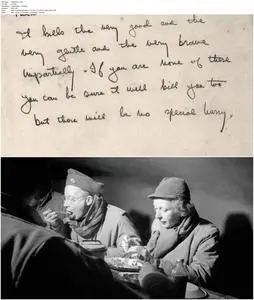 It kills the very good and the
very gentle and the very brave
impartially. If you are none of these
you can be sure it will kill you too
but there will be no special hurry.